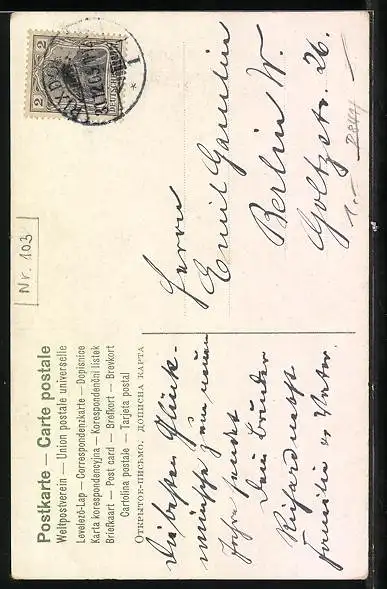 Postkarte — Carte postale
Weltpostverein — Union postale universelle
Levelező-Lap — Correspondenzkarte — Dopisnice
Karta korespondencyjna — Korespondenční lístek
Briefkaart — Post card — Brefkort — Brevkort
Cartolina postale — Tarjeta postal
Открытое-письмо, дописна карта
Nr. 103
2 2
RIXDORF
31.12.
1
*
Herrn
Emil
Berlin W.
Goltzstr. 26.
1.-
Die besten Glück-
wünsche zum neuen
Jahre sendet
Dein Bruder
Richard nebst
Familie